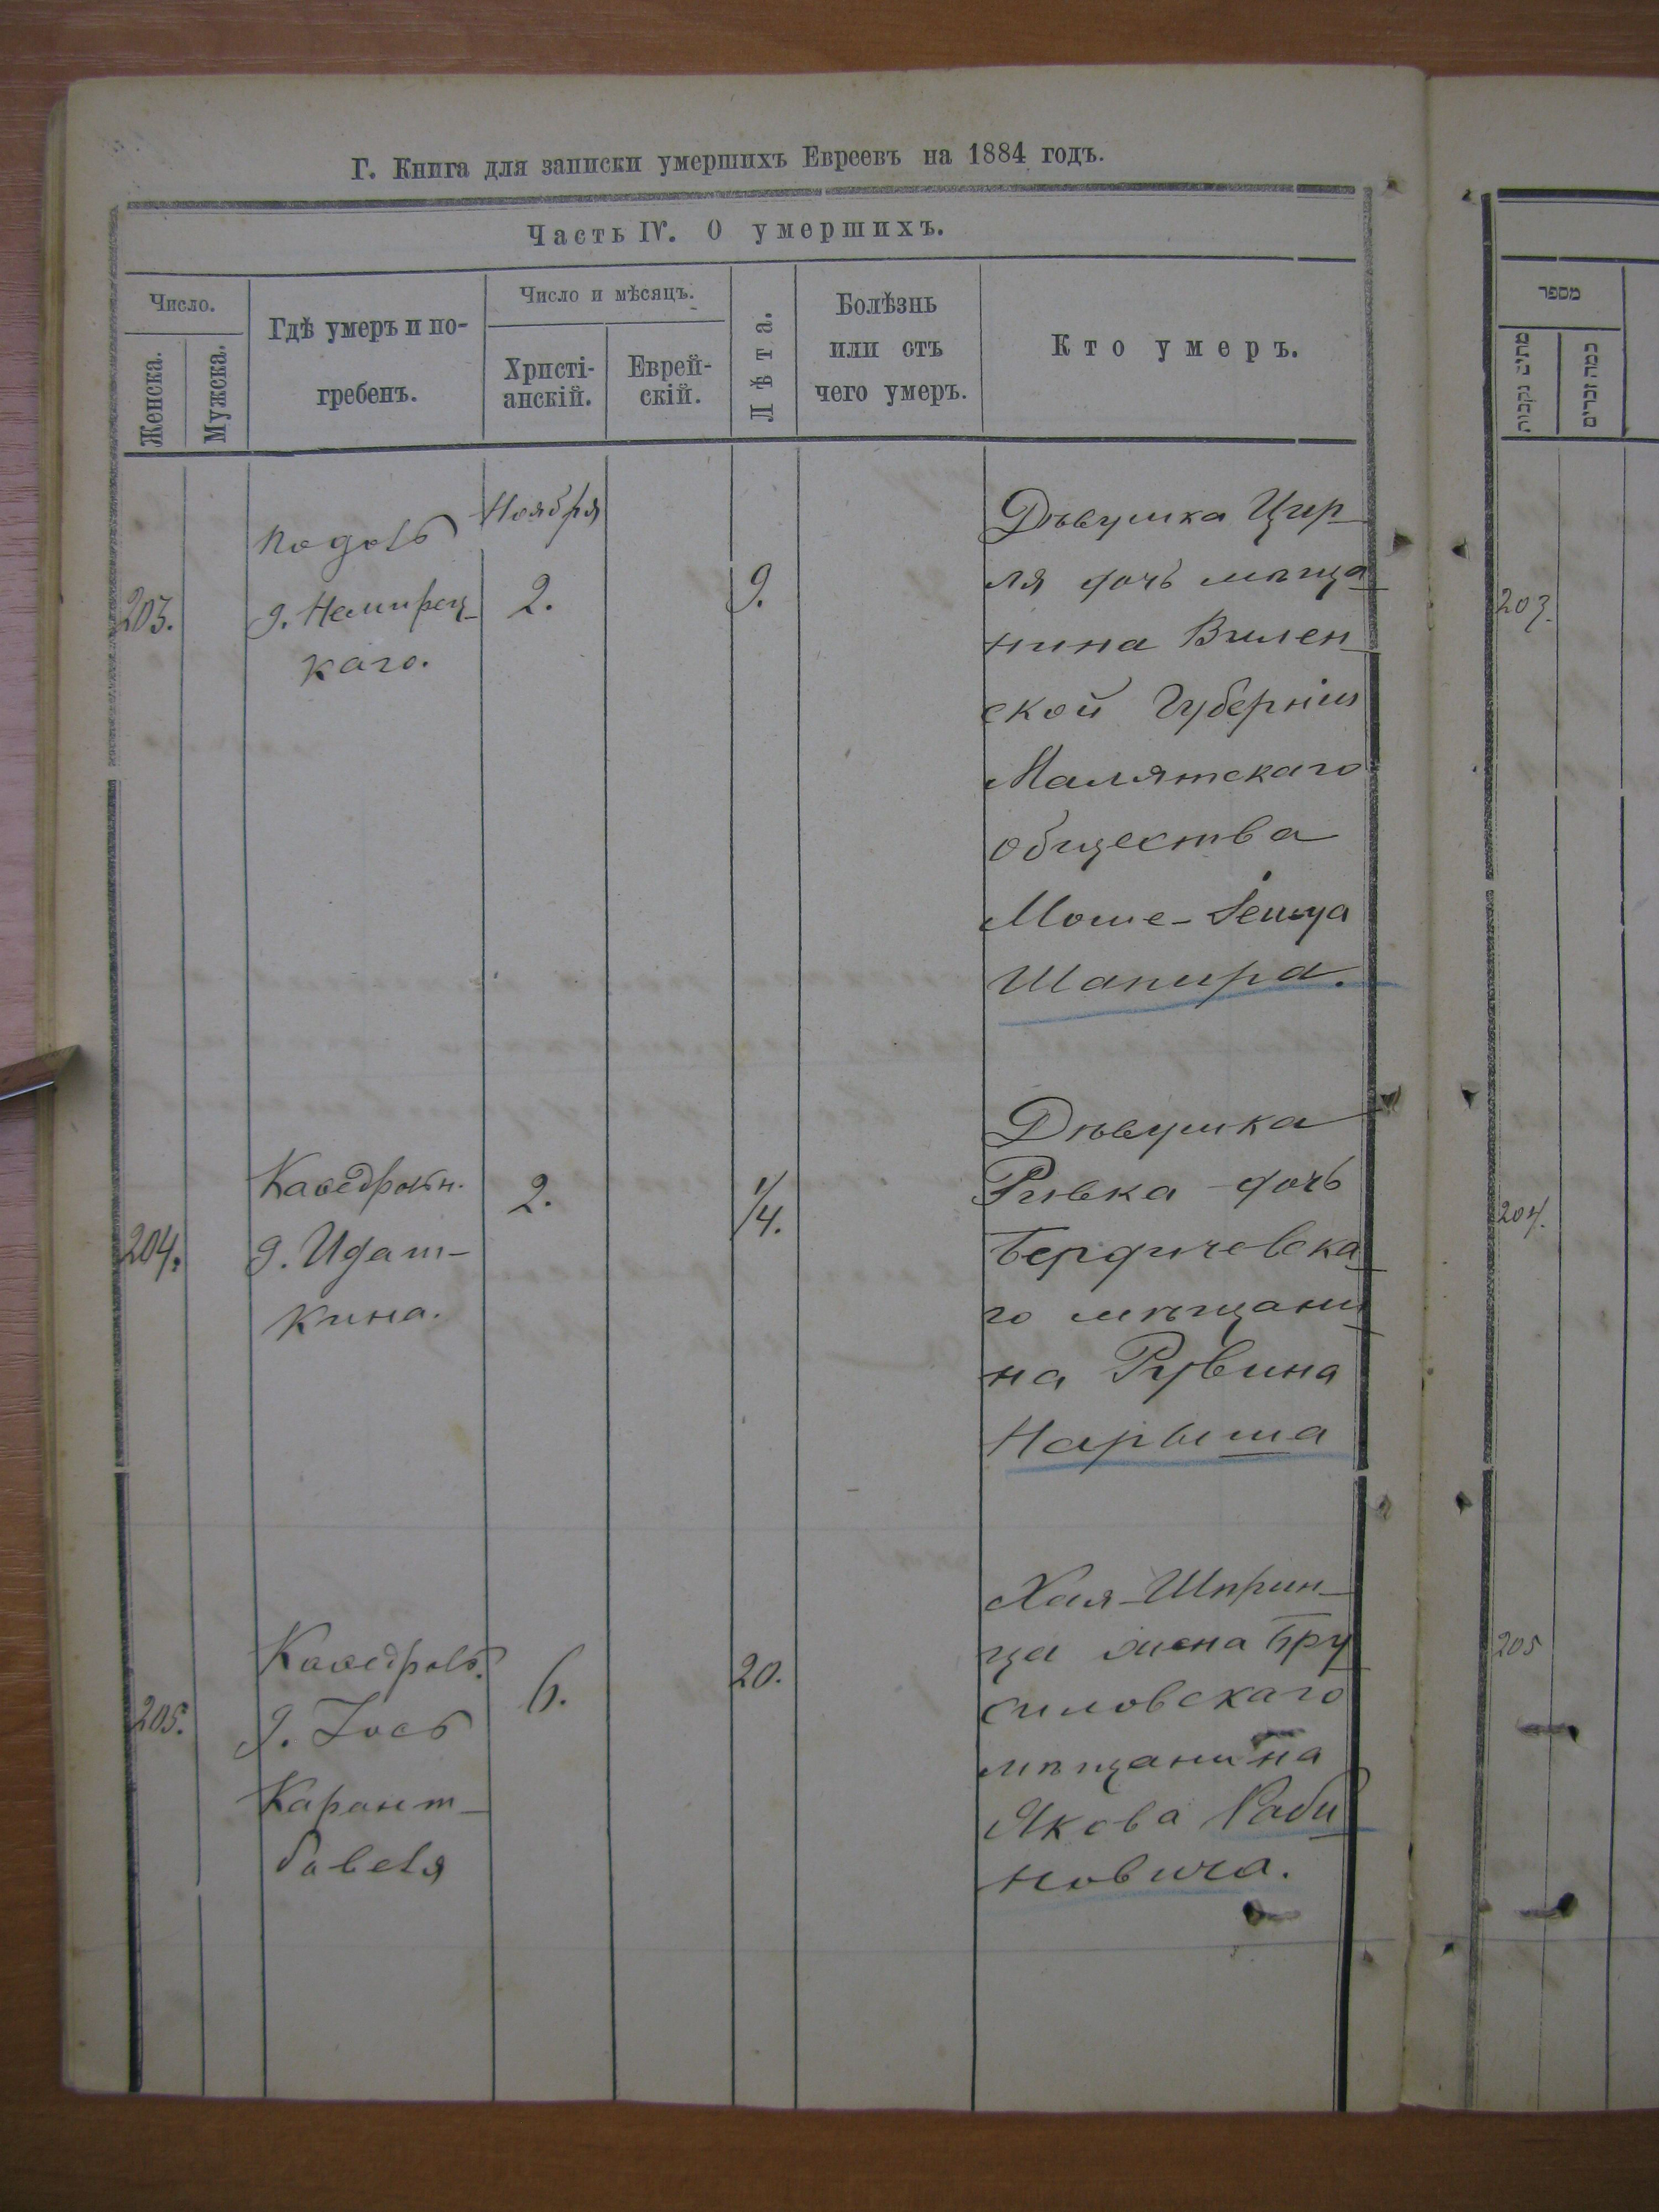 Г. Книга для записки умершихъ Евреевъ на 1884 годъ.
Часть IV. О умершихъ.
Число.
Женска.
Мужска.
Гдѣ умеръ и по-
гребенъ.
Число и мѣсяцъ.
Христі-
анскій.
Еврей-
скій.
Лѣта.
Болѣзнь
или отъ
чего умеръ.
Кто умеръ.
מספר
מתים נקבות
כמה זכרים
203.
Подолъ
д. Немирец-
каго.
Ноября
2.
9.
Дѣвушка Цир-
ля дочь мѣща-
нина Вилен-
ской Губерніи
Малятскаго
общества
Моше-Іешуа
Шапира.
203.
204.
д. Идат-
кина.
2.
1/4.
Дѣвушка
Ривка дочь
Бердичевска-
го мѣщани-
на Рувина
Нарыша
204.
205.
д. Іось
Карант-
баделя
6.
20.
Хая-Шприн-
ца жена Бру-
силовскаго
мѣщанина
Якова Раби-
новича.
205